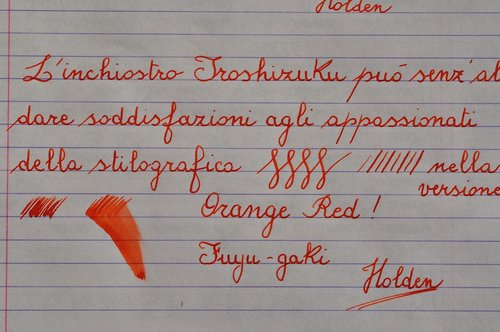 Holden
L'inchiostro Iroshizuku può senz'al
dare soddisfazioni agli appassionati
della stilografica nella
versione
Orange Red!
Fuyu-gaki
Holden